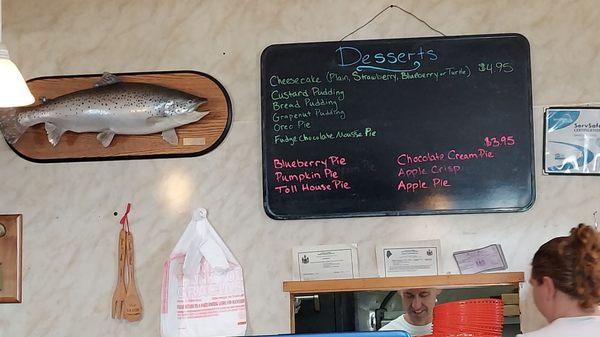 Desserts
Cheesecake (Plain, Strawberry, Blueberry or Turtle) $4.95
Custard Pudding
Bread Pudding
Grapenut Pudding
Oreo Pie
Fudge Chocolate Mousse Pie
$3.95
Blueberry Pie Chocolate Cream Pie
Pumpkin Pie Apple Crisp
Toll House Pie Apple Pie
ServSafe
CERTIFICATION